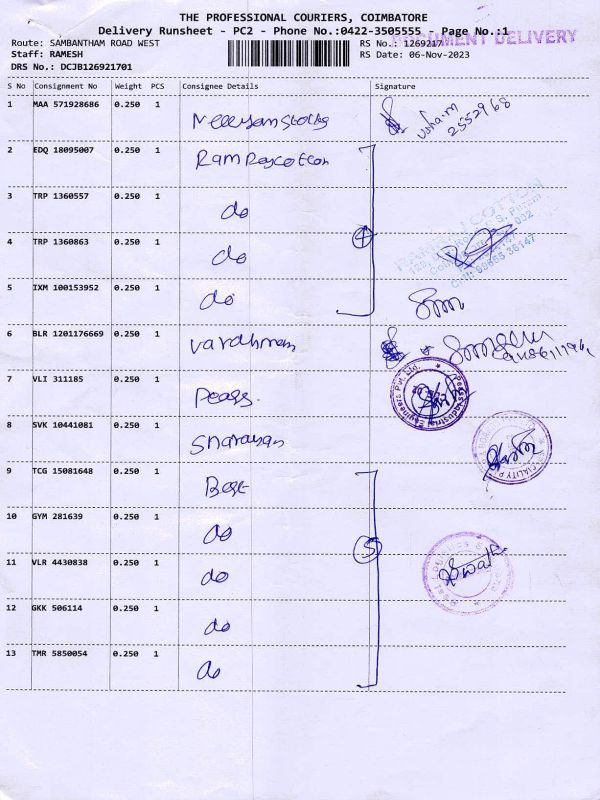 THE PROFESSIONAL COURIERS, COIMBATORE
Delivery Runsheet - PC2 - Phone No.:0422-3505555 Page No.:1
DOCUMENT DELIVERY
Route: SAMBANTHAM ROAD WEST RS No.: 1269217
Staff: RAMESH RS Date: 06-Nov-2023
DRS No.: DCJB126921701
S No Consignment No Weight PCS Consignee Details Signature
1 MAA 571928686 0.250 1
2552968
2 EDQ 18095007 0.250 1 Ram Raycotton
3 TRP 1360557 0.250 1 do
4 TRP 1360863 0.250 1 do
4
5 IXM 100153952 0.250 1 do
6 BLR 1201176669 0.250 1 vardhman
7 VLI 311185 0.250 1
8 SVK 10441081 0.250 1
9 TCG 15081648 0.250 1 Best
10 GYM 281639 0.250 1 do
5
11 VLR 4430838 0.250 1 do
12 GKK 506114 0.250 1 do
13 TMR 5850054 0.250 1 do